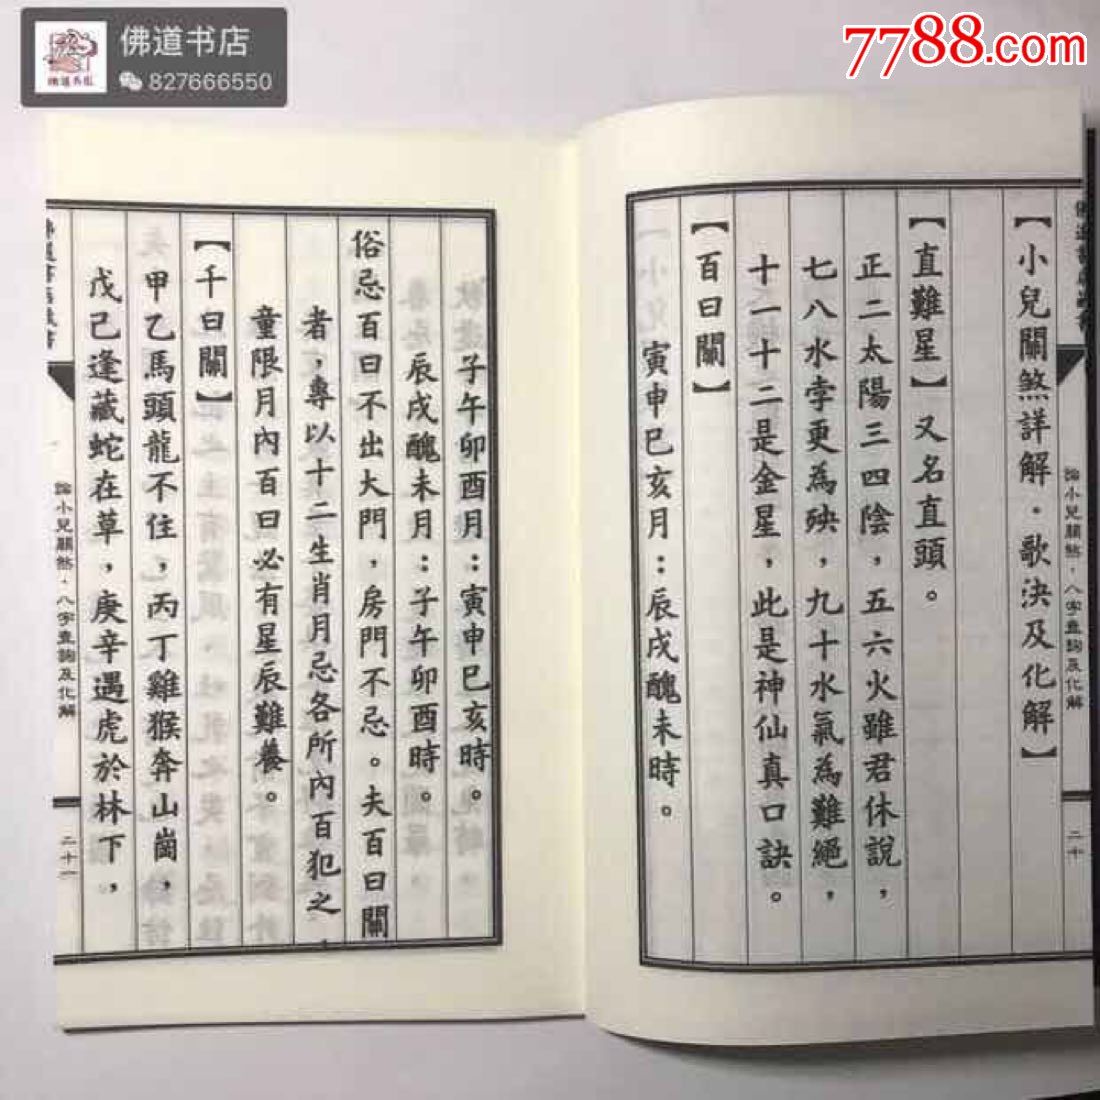 佛道书店
827666550
7788.com
【小兒關煞詳解·歌決及化解】
【直難星】又名直頭。
正二太陽三四陰，五六火雖君休說，
七八水孛更為殃，九十水氣為難絕，
十一十二是金星，此是神仙真口訣。
【百日關】
寅申巳亥月：辰戌醜未時。
論小兒關煞·八字查詢及化解
二十
子午卯酉月：寅申巳亥時。
辰戌醜未月：子午卯酉時。
俗忌百日不出大門，房門不忌。夫百日關
者，專以十二生肖月忌各所內百犯之，
童限月內百日必有星辰難養。
【千日關】
甲乙馬頭龍不住，丙丁雞猴奔山崗，
戊己逢藏蛇在草，庚辛遇虎於林下，
論小兒關煞·八字查詢及化解
二十一